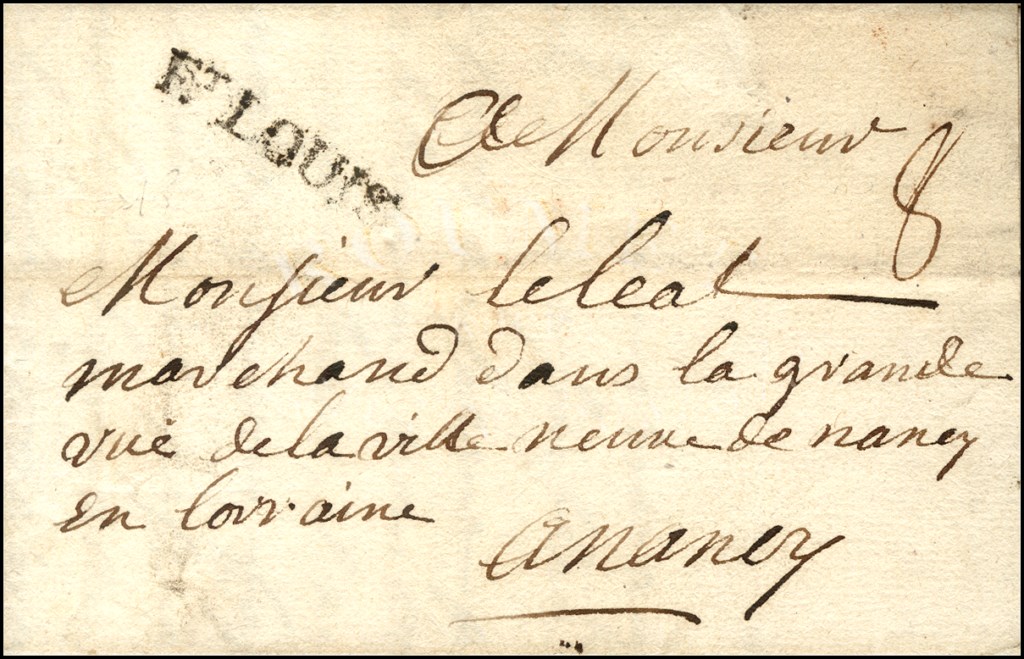 Ft LOUIS
A Monsieur
8
Monsieur leleal
marchand dans la grande
rue de la ville neuve de nancy
en lorraine
a nancy